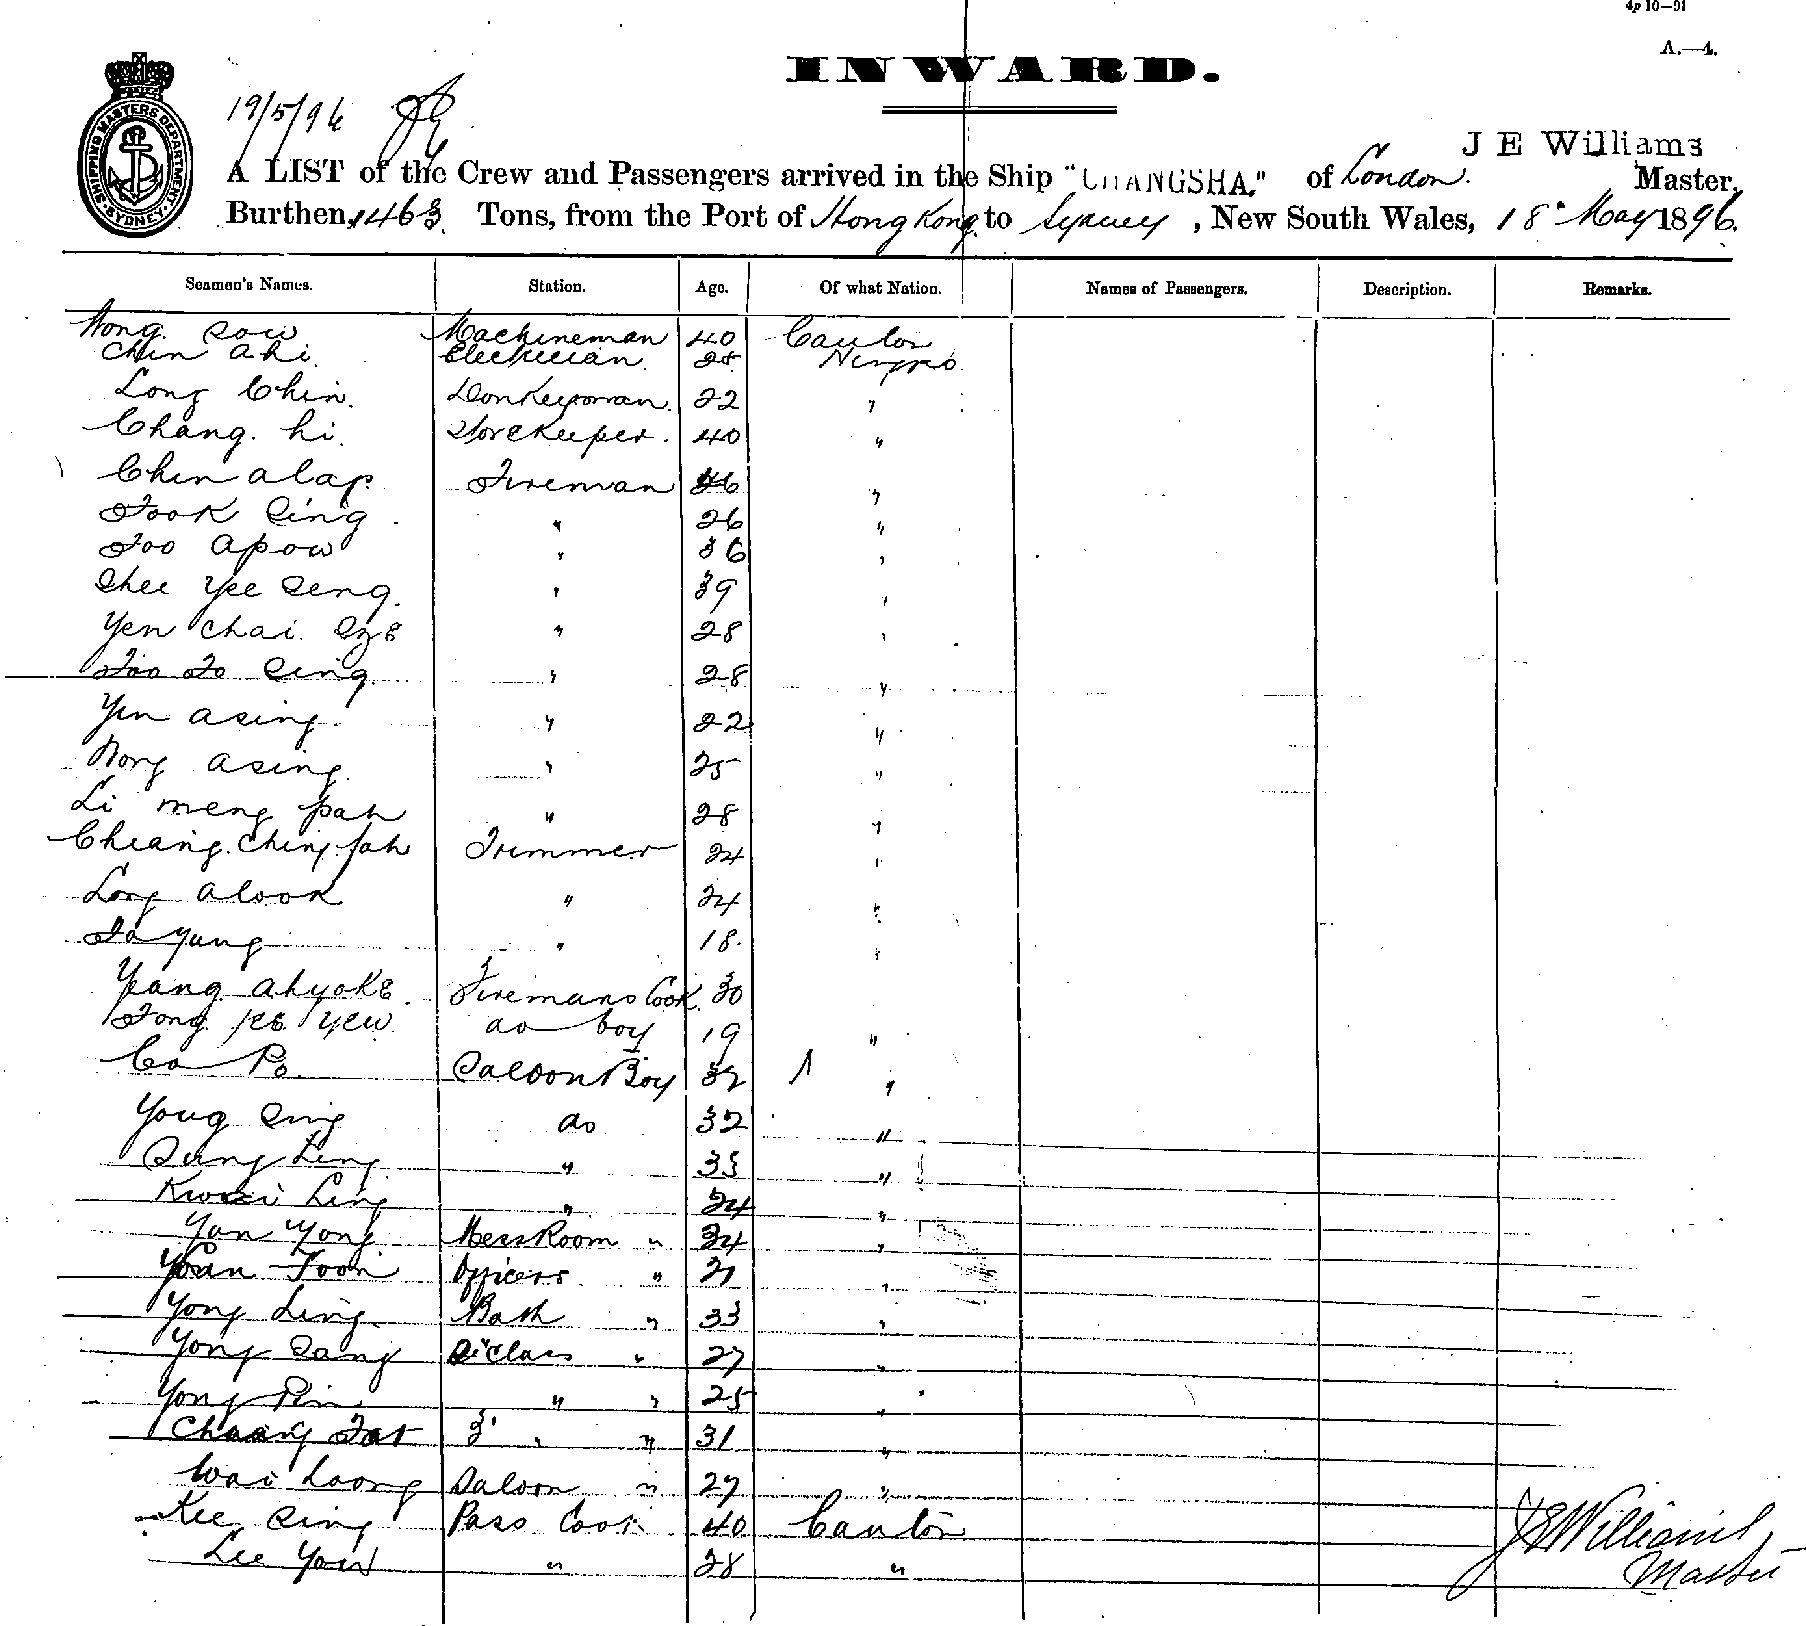 4p 10—91
A.—4.
INWARD.
SHIPPING MASTERS DEPARTMENT SYDNEY
19/5/96
J E Williams
A LIST of the Crew and Passengers arrived in the Ship "CHANGSHA," of London. Master,
Burthen, 1463 Tons, from the Port of Hong Kong to Sydney, New South Wales, 18 May 1896.
Seamen's Names. Station. Age. Of what Nation. Names of Passengers. Description. Remarks.
Wong Sow Machineman 40 Canton
Chin Ahi Electrician 28 Ningpo
Long Chin. Donkeyman. 22 "
Chang. hi. Storekeeper. 40 "
Chin alap Fireman "
Fook Sing " 26 "
Foo apow " 36 "
Shee Yee Seng. " 39 "
Yen Chai Sze " 28 "
Foo Fo Sing " 28 "
Yen asing. " 22 "
Wong asing. " 25 "
Li meng pah " 28 "
Cheang. Ching fah Trimmer 24 "
Long alook " 24 "
Fa yung " 18 "
Yang ahyoke. Firemans Cook 30
Fong Yew do boy 19 "
Ca Po. Saloon Boy 32 "
Yong Sing do 32 "
Sang Ling " 33 "
Kwai Ling " 24 "
Yan Yong MessRoom " 34 "
Yoan Foon Officers " 21 "
Yong Ling. Bath " 33 "
Yong Sang Class " 27 "
Yong Pin " " 25 "
Chaang Fat 3' " " 31 "
Wai Loong Saloon " 27 "
Kee Sing Pass Cook 40 Canton
Lee Yow " 28 "
JEWilliams
Master